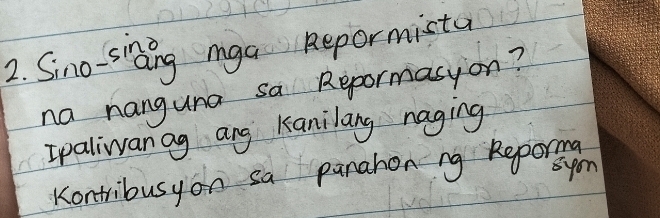 2. Sino-sino ang mga Repormista
na nanguna sa Repormasyon?
Ipaliwanag ang Kanilang naging
Kontribusyon sa panahon ng Reporma
syon